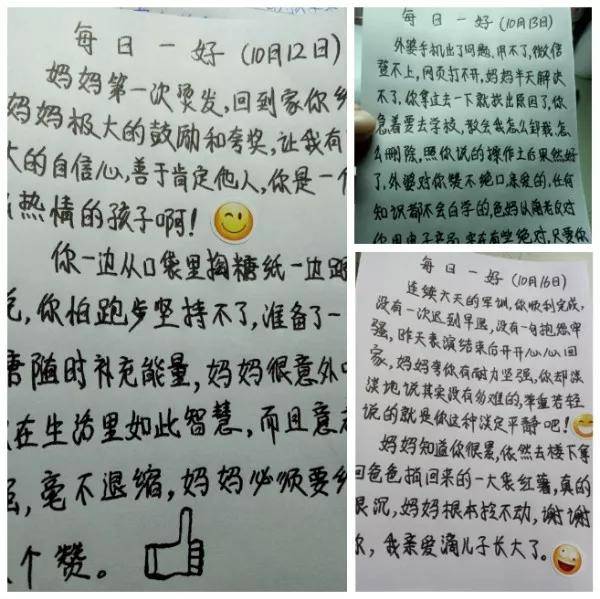 每日一好(10月12日)
妈妈第一次烫发,回到家你
妈妈极大的鼓励和夸奖,让我有
大的自信心,善于肯定他人,你是一个
热情的孩子啊!
你一边从口袋里掏糖纸一边跟
你怕跑步坚持不了,准备了一
随时补充能量,妈妈很意外
在生活里如此智慧,而且意
毫不退缩,妈妈必须要
个赞。
每日一好(10月13日)
外婆手机出了问题,用不了,微信
登不上,网页打不开,妈妈半天解决
不了,你拿过去一下就找出原因了,你
急着要去学校,教会我怎么卸载,怎
么删除,照你说的操作之后果然好
了,外婆对你赞不绝口亲爱的,任何
知识都不会白学的,爸妈从前老反对
你用电子产品,实在有些绝对,只要你
每日一好(10月16日)
连续六天的军训,你顺利完成,
没有一次迟到早退,没有一句抱怨
强,昨天表演结束后开开心心回
家,妈妈夸你有耐力坚强,你却淡
淡地说其实没有多难的,举重若轻
说的就是你这种淡定平静吧!
妈妈知道你很累,依然去楼下拿
回爸爸捎回来的一大袋红薯,真的
很沉,妈妈根本拎不动,谢谢
你,我亲爱滴儿子长大了。